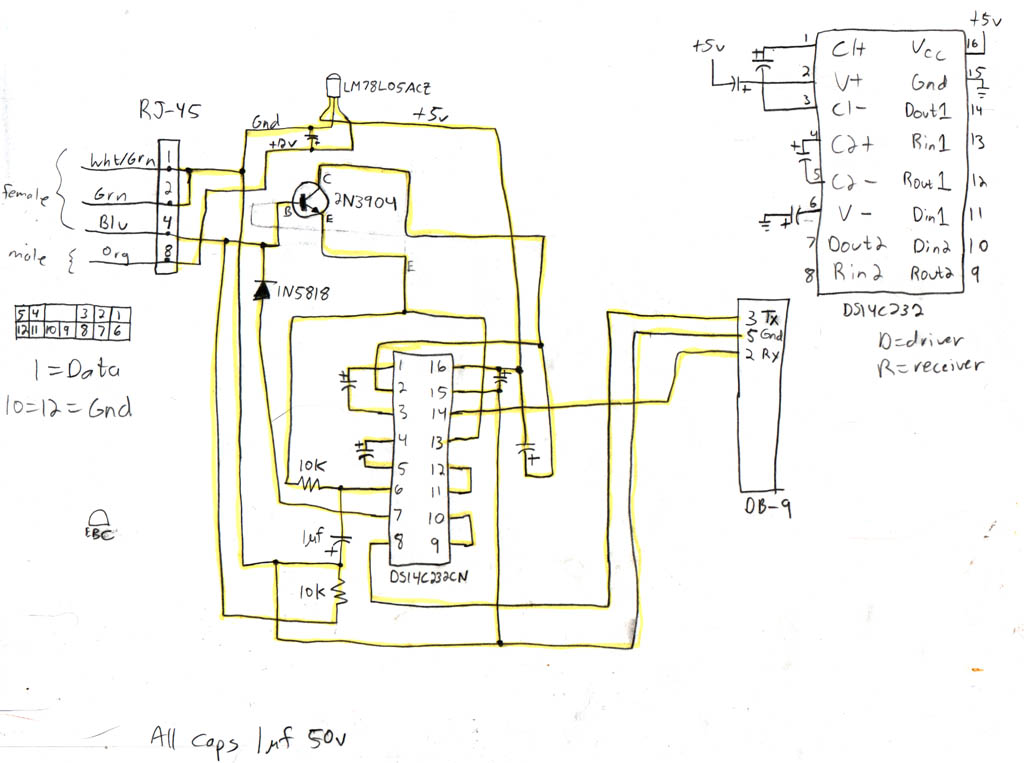 +5v
+5v
1 C1+ Vcc 16
2 V+ Gnd 15
3 C1- Dout1 14
4 C2+ Rin1 13
5 C2- Rout1 12
6 V- Din1 11
7 Dout2 Din2 10
8 Rin2 Rout2 9
DS14C232
D=driver
R=receiver
LM78L05ACZ
Gnd
+5v
+12v
RJ-45
female
Wht/Grn 1
Grn 2
Blu 4
male
Org 8
C
B
E
2N3904
E
1N5818
5 4 3 2 1
12 11 10 9 8 7 6
1=Data
10=12=Gnd
EBC
1 16
2 15
3 14
4 13
5 12
6 11
7 10
8 9
DS14C232CN
10K
1µf
10K
3 Tx
5 Gnd
2 Rx
DB-9
All caps 1µf 50v